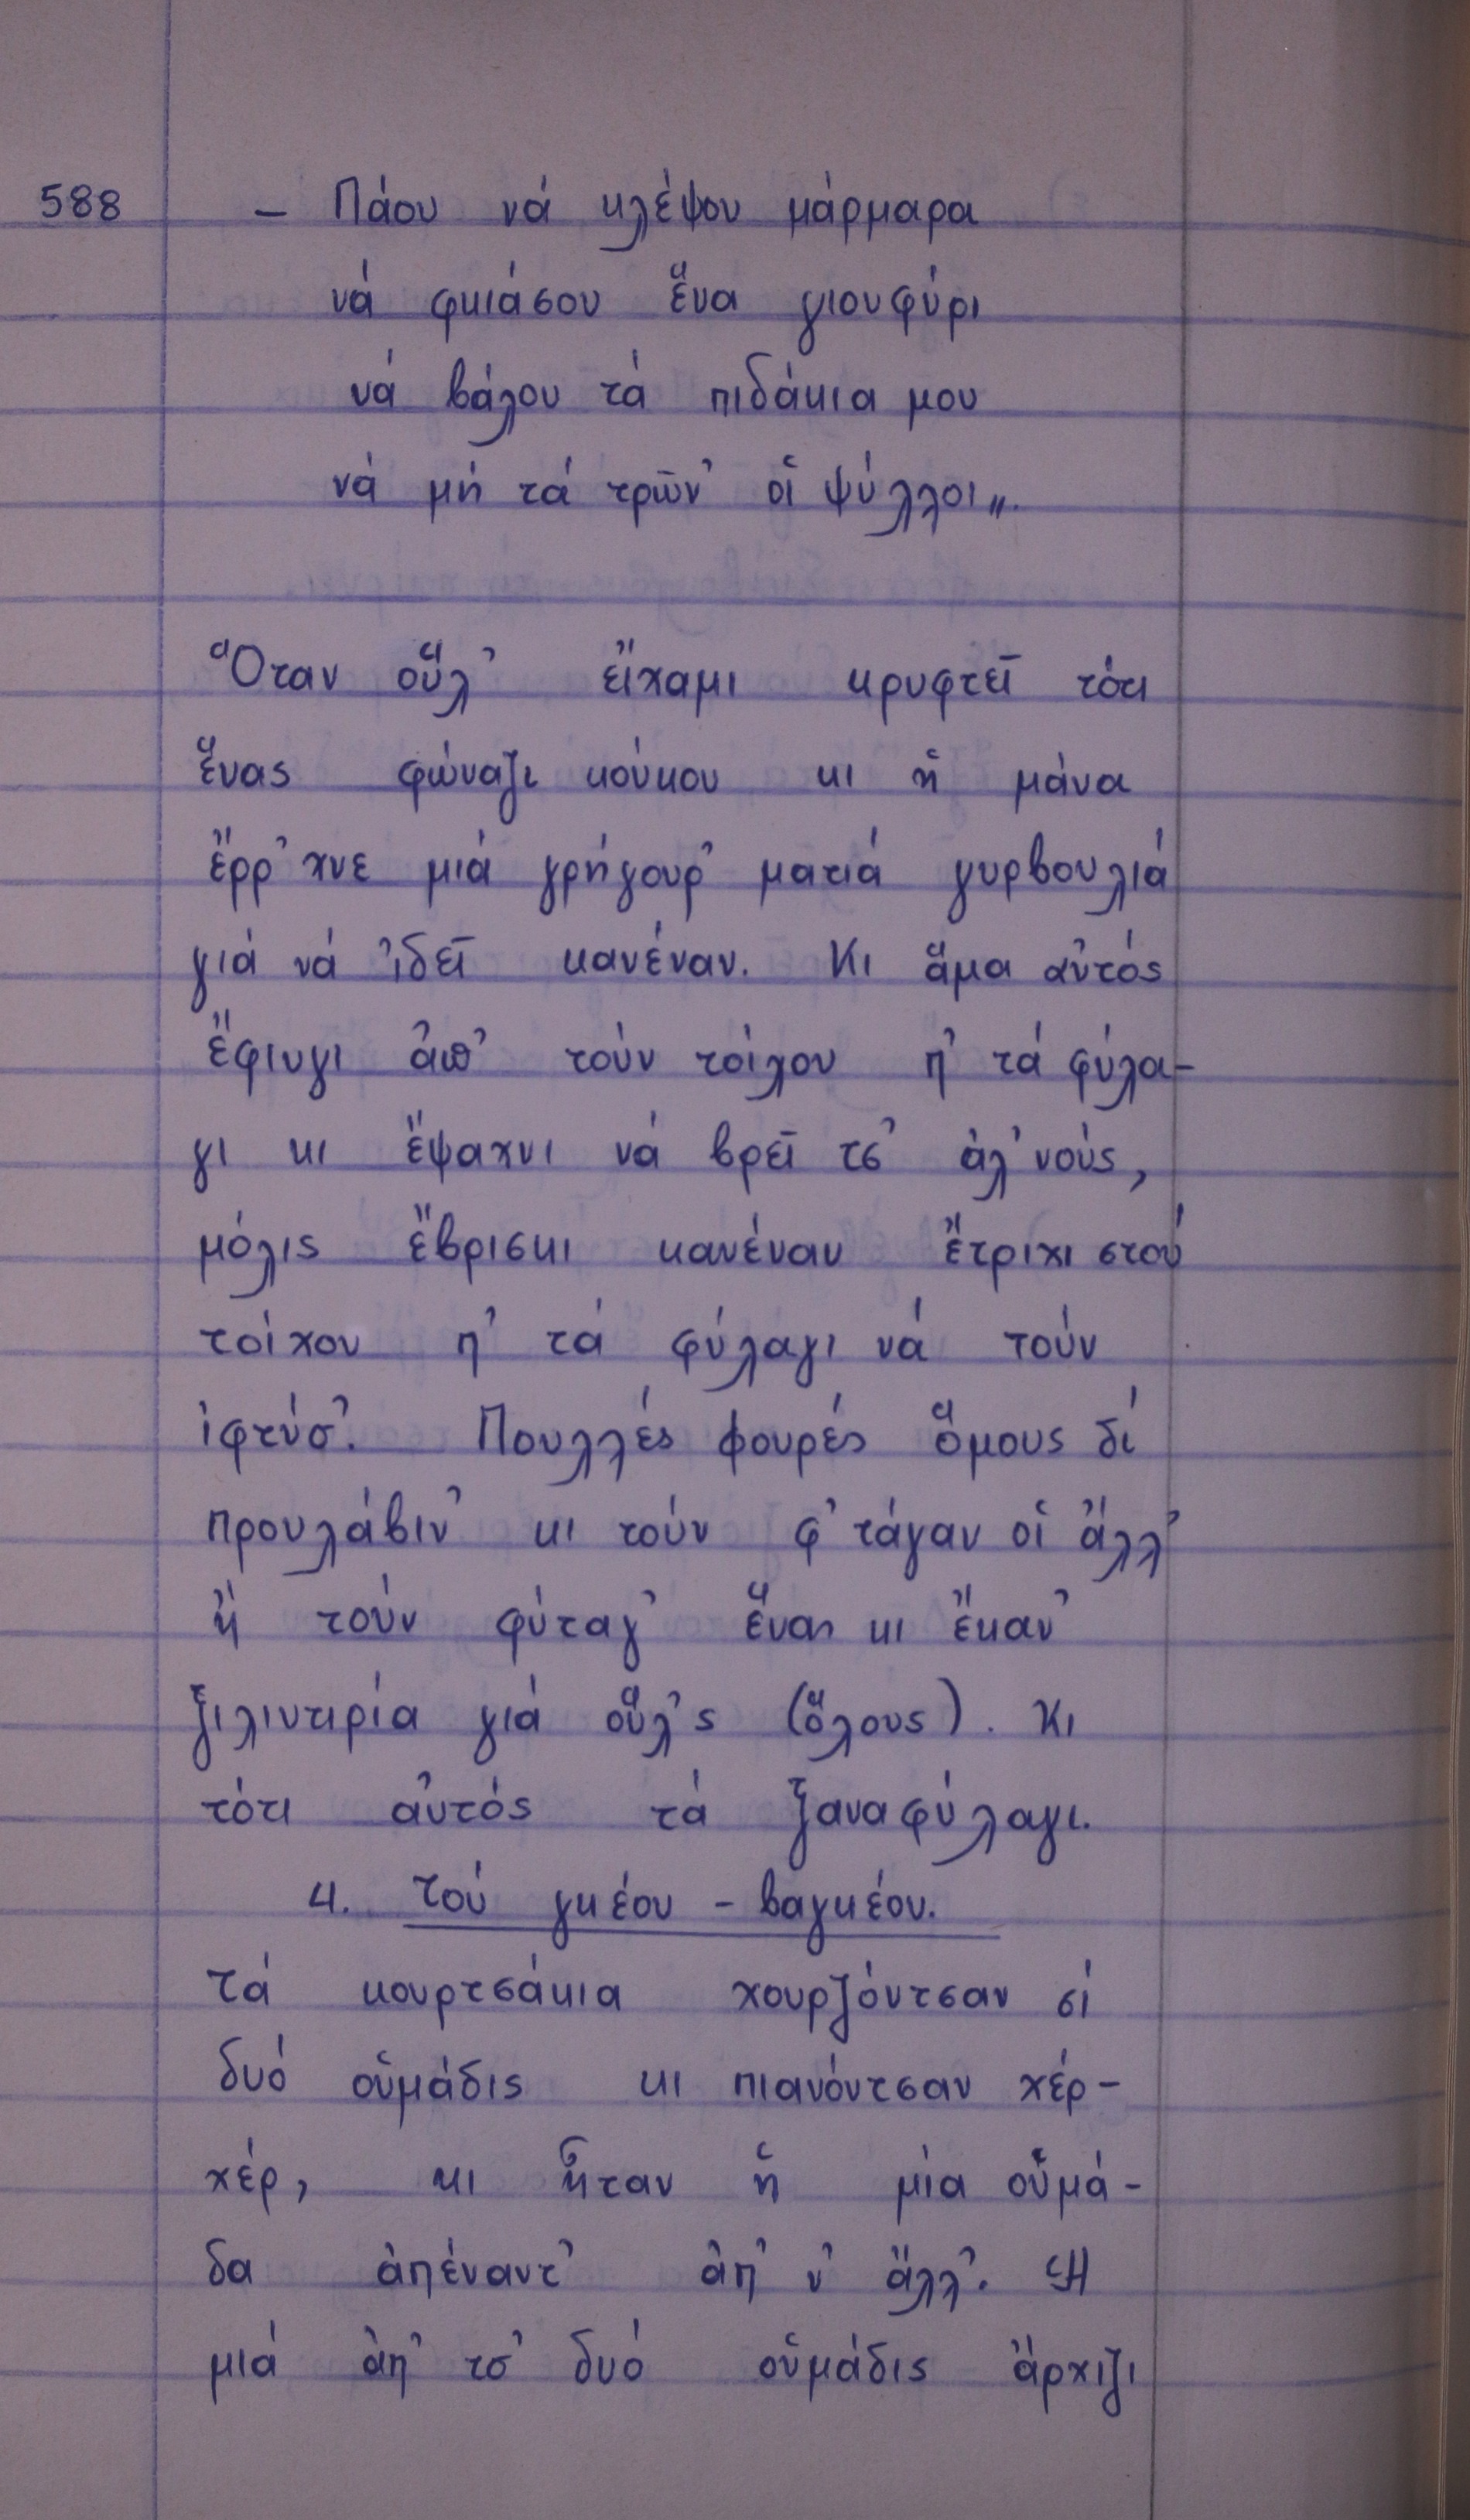 588 – Πάου νά κλέψου μάρμαρα
νά φκιάσου ἕνα γιουφύρι
νά βάλου τά πιδάκια μου
νά μή τά τρῶν' οἱ ψύλλοι„.
Ὅταν οὕλ' εἴχαμι κρυφτεῖ τότι
ἕνας φώναζι κούκου κι ἡ μάνα
ἔρρ'χνε μιά γρήγουρ' ματιά γυρβουλιά
γιά νά 'ιδεῖ κανέναν. Κι ἅμα αὐτός
ἔφιυγι ἀπ' τούν τοίχου π' τά φύλα-
γι κι ἔψαχνι νά βρεῖ τσ' ἀλ'νούς,
μόλις ἔβρισκι κανέναν ἔτριχι στού
τοίχου π' τά φύλαγι νά τούν
ιφτύσ'. Πουλλές φουρές ὅμους δί
προυλάβιν' κι τούν φ'τάγαν οἱ ἄλλ'
ἤ τούν φύταγ' ἕνας κι ἔκαν'
ξιλιυτιρία γιά οὕλ'ς (ὅλους). Κι
τότι αὐτός τά ξαναφύλαγι.
4. Τού γκέου – βαγκέου.
Τά κουρτσάκια χουρζόντσαν σί
δυό οὐμάδις κι πιανόντσαν χέρ-
χέρ, κι ἦταν ἡ μία οὐμά-
δα ἀπέναντ' ἀπ' ν' ἄλλ'. Ἡ
μιά ἀπ' τσ' δυό οὐμάδις ἄρχιζι